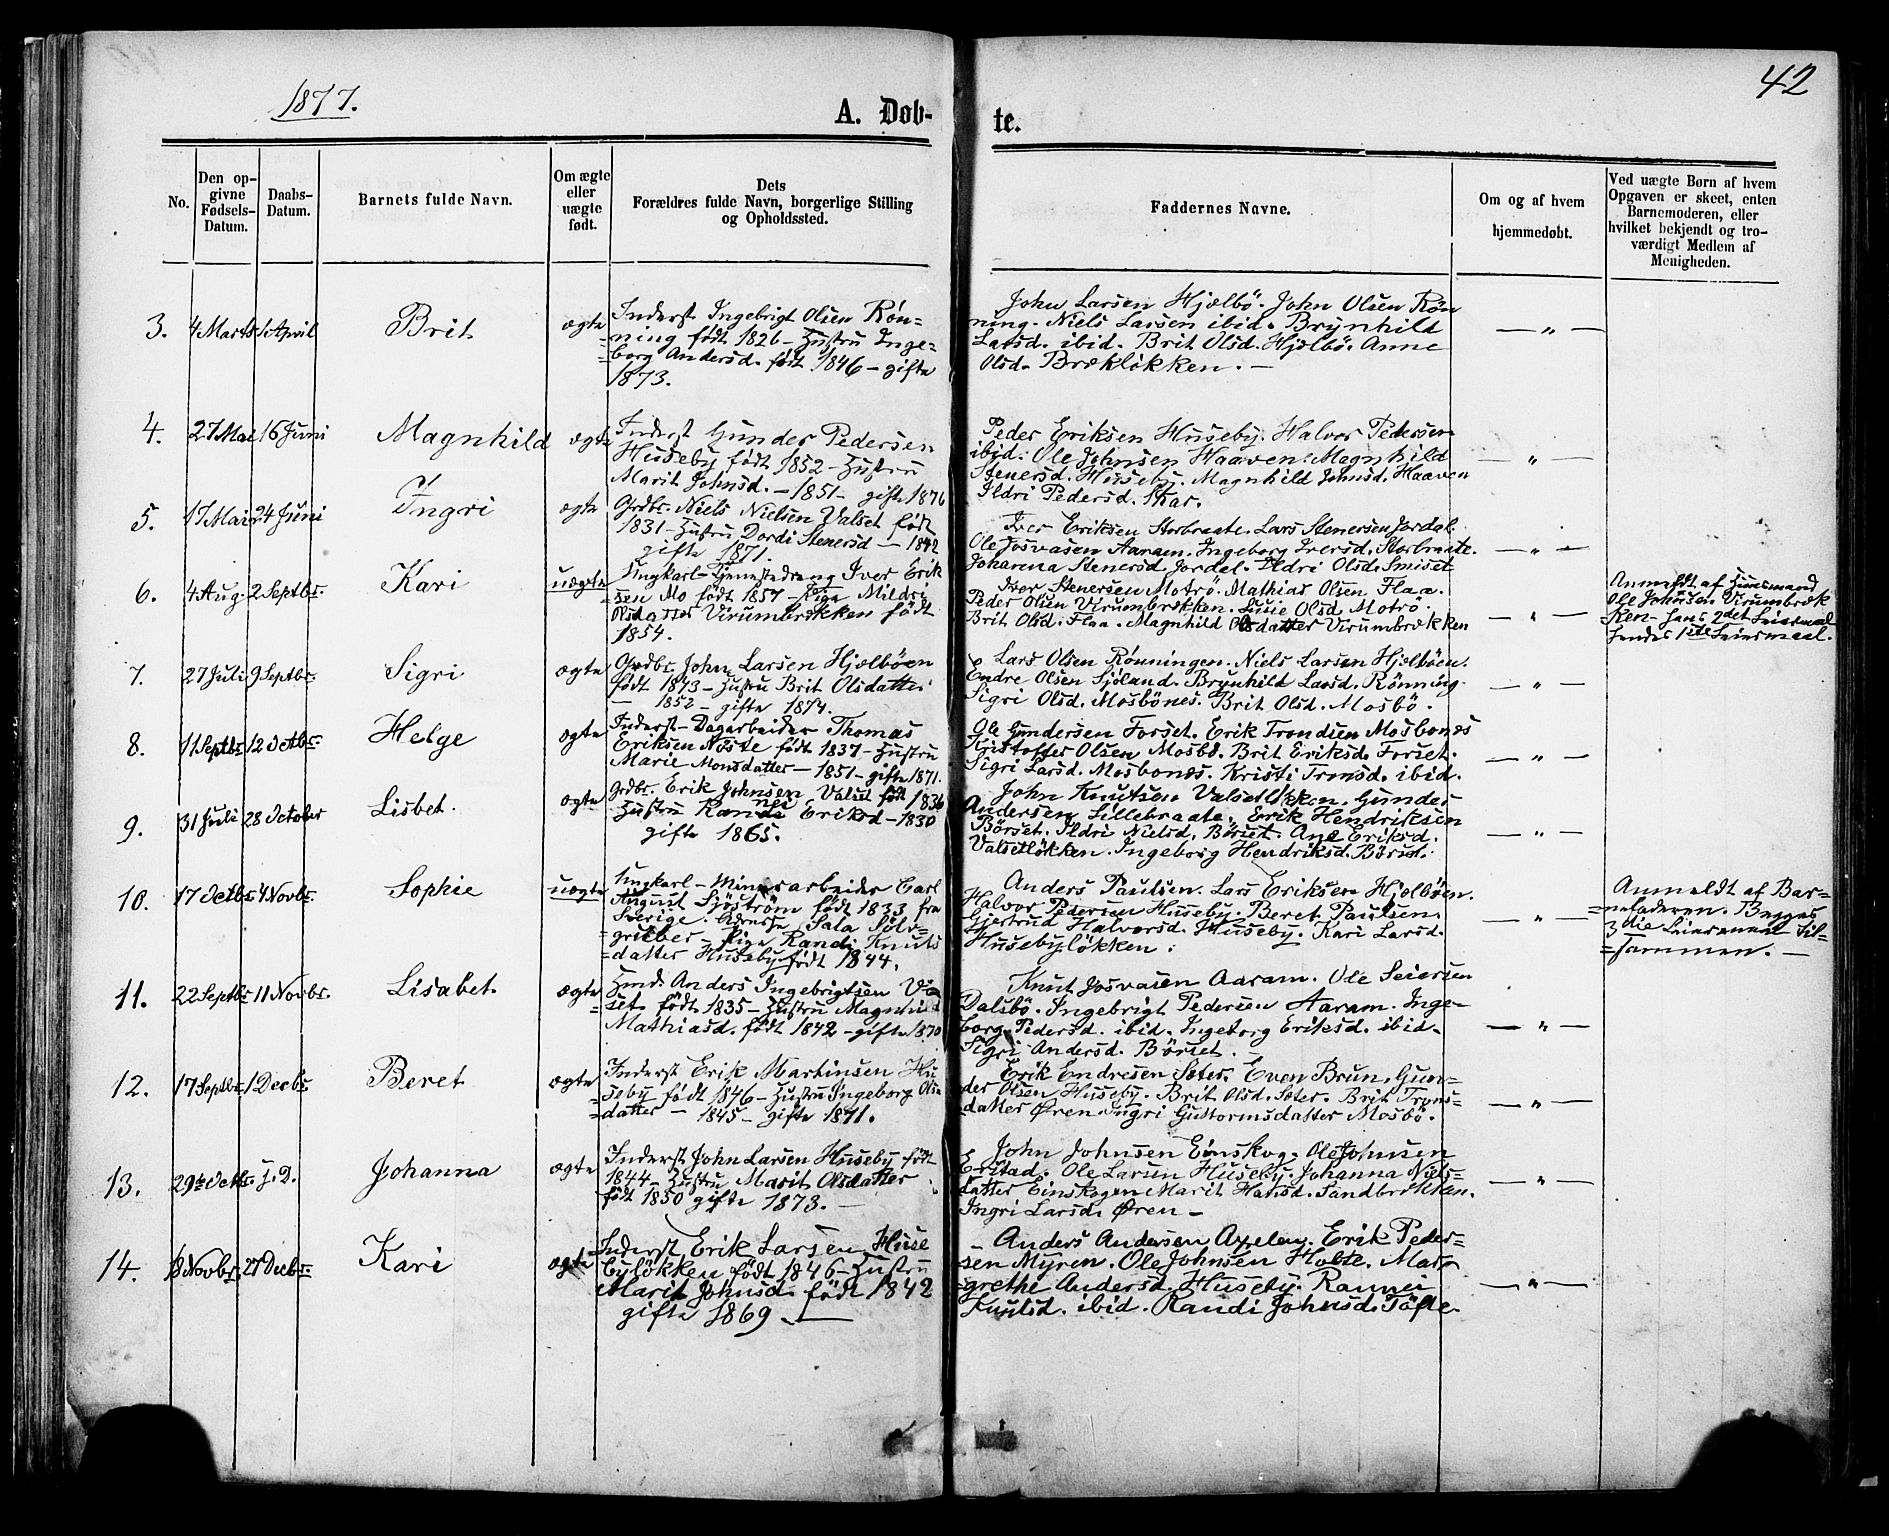 1877.
42
A. Døb-
te.
No.
Den op-
givne
Fødsels-
Datum.
Daabs-
Datum.
Barnets fulde Navn.
Om ægte
eller
uægte
født.
Dets
Forældres fulde Navn, borgerlige Stilling
og Opholdssted.
Faddernes Navne.
Om og af hvem
hjemmedøbt.
Ved uægte Børn af hvem
Opgaven er skeet, enten
Barnemoderen, eller
hvilket bekjendt og tro-
værdigt Medlem af
Menigheden.
3. 4 Marts 1 April Brit ægte
Inderst Ingebrigt Olsen Røn-
=ning født 1826 - Hustru Inge-
=borg Andersd. født 1846 - gifte
1873.
John Larsen Hjælbö. John Olsen Røn
ning. Niels Larsen ibid. Brynhild
Larsd. ibid. Brit Olsd. Hjælbö. Anne
Olsd. Brækløkken. -
— " —
4. 27 Mai 16 Juni Magnhild ægte
Inderst Gunder Pedersen
Huseby født 1852 - Hustru
Marit Johnsd. - 1851 - gifte 1876
Peder Eriksen Huseby. Halvor Pedersen
ibid. Ole Johnsen Haaven. Magnhild
Stenersd. Huseby. Magnhild Johnsd. Haaven
Ildri Pedersd. Skar.
— " —
5. 17 Mai 24 Juni Ingri ægte
Grdbr. Niels Nielsen Valset født
1831 - Hustru Dordi Stenersd - 1842
gifte 1871.
Iver Eriksen Storbraate. Lars Stenersen Jordal
Ole Josvasen Aaram. Ingeborg Iversd. Storbraate.
Johanna Stenersd Jordal. Ildri Olsd. Smiset
— " —
6. 4 Aug. 2 Septbr. Kari uægte
Ungkarl - Tjenestedreng Iver Erik
=sen Mo født 1857 - Pige Mildri
Olsdatter Virumbrækken født
1854.
Iver Stenersen Motrö. Mathias Olsen Flaa.
Peder Olsen Virumbrækken. Olsd. Motrö.
Brit Olsd. Flaa. Magnhild Olsdatter Virumbrækken
— " —
Anmeldt af Huusmand
Ole Johnsen Virumbræk
ken - Hans 2det Leiermaal
Hendes 1ste Leiermaal.
7. 27 Juli 9 Septbr. Sigri ægte
Grdbr. John Larsen Hjælböen
født 1873 - Hustru Brit Olsdatter
— 1852 - gifte 1874.
Lars Olsen Rønningen. Niels Larsen Hjælböen.
Endre Olsen Sjöland. Brynhild Larsd. Rønning.
Sigri Olsd. Mosbönes. Brit Olsd. Mosbö.
— " —
8. 11 Septbr 12 Octbr. Helge ægte
Inderst - Dagarbeider Thomas
Eriksen Nöste født 1837 - Hustru
Marie Monsdatter - 1851 - gifte 1871.
Ole Gundersen Forset. Erik Trondsen Mosbönes
Kristoffer Olsen Mosbö. Brit Eriksd. Forset.
Sigri Larsd. Mosbönes. Kristi Tronsd. ibid.
— " —
9. 31 Juli 28 October Lisbet. ægte
Grdbr. Erik Johnsen Valset født 1836
Hustru Eriksd - 1830
gifte 1865.
John Knutsen Valsetløkken. Gunder
Andersen Lillebraate. Erik Hendriksen
Börset. Ildri Nielsd. Börset. Ane Eriksd.
Valsetløkken. Ingeborg Hendriksd. Börset.
— " —
10. 17 Octbr 4 Novbr. Sophie uægte
Ungkarl - Minearbeider Carl
August Sjöström født 1833 fra
Sverige. Adresse Sala Sölv-
=gruber - Pige Randi Knuts
=datter Huseby født 1844.
Anders Paulsen. Lars Eriksen Hjælböen.
Halvor Pedersen Huseby. Beret Paulsen.
Gjertrud Halvorsd. Huseby. Kari Larsd.
Husebyløkken.
— " —
Anmeldt af Bar-
=nefaderen. Begges
3die Leiermaal Til-
=sammen. —
11. 22 Septbr 11 Novbr. Lisabet. ægte
Hmd. Anders Ingebrigtsen Val
=set født 1835 - Hustru Magnhild
Mathiasd. født 1842 - gifte 1870
Knut Josvasen Aaram. Ole Seiersen
Dalsbö. Ingebrigt Pedersen Aaram. Inge-
borg Pedersd. ibid. Ingeborg Eriksd. ibid.
Sigri Andersd. Börset.
— " —
12. 17 Septbr. 1 Decbr Beret ægte
Inderst Erik Martinsen Hu
=seby født 1846 - Hustru Ingeborg Ols-
=datter - 1845 - gifte 1871.
Erik Endresen Sæter. Even Brun. Gun-
der Olsen Huseby. Brit Olsd. Sæter. Brit Trons-
datter Ören. Ingri Guttormsdatter Mosbö.
— " —
13. 29de Octbr. J. D. Johanna ægte
Inderst John Larsen Huseby født
1844 - Hustru Marit Olsdatter
født 1850 gifte 1873. -
John Johnsen Einskog. Ole Johnsen
Erstad. Ole Larsen Huseby. Johanna Niels-
datter Einskogen. Marit Hansd. Sandbrækken.
Ingri Larsd. Ören -
— " —
14. 18 Novbr. 27 Decbr. Kari ægte
Inderst Erik Larsen Huse
byløkken født 1846 - Hustru
Marit Johnsd. født 1842
gifte 1869. —
Anders Andersen Axelen. Erik Peder-
sen Myren. Ole Johnsen Holte. Mar
=grethe Andersd. Huseby. Rannei
Knutsd. ibid. Randi Johnsd. Töfte.
— " —